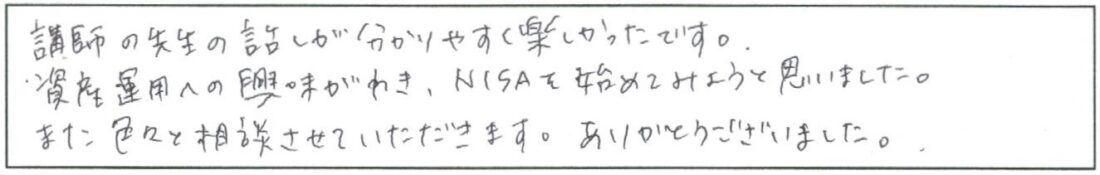 講師の先生の話しが分かりやすく楽しかったです。
資産運用への興味がわき、NISAを始めてみようと思いました。
また色々と相談させていただきます。ありがとうございました。